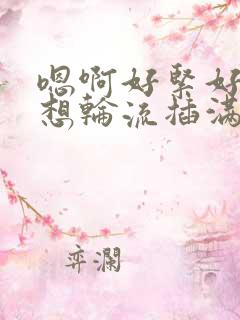 嗯啊好紧好
想輪流插满
弈瀾